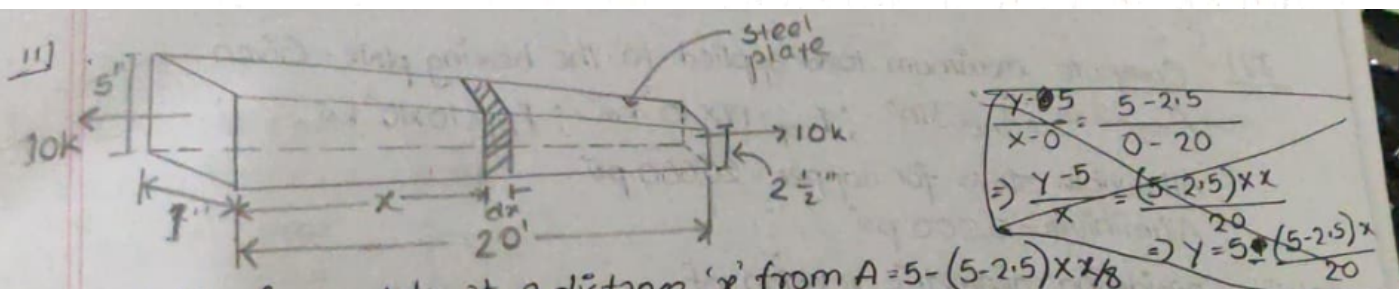 11]
steel
plate
5"
10k
10k
2 1/2"
1"
x
dx
20'
y-5/x-0 = 5-2.5/0-20
=> y-5/x = (5-2.5)xx/20
=> y=5-(5-2.5)x/20
at a distance 'x' from A = 5-(5-2.5)x x/8